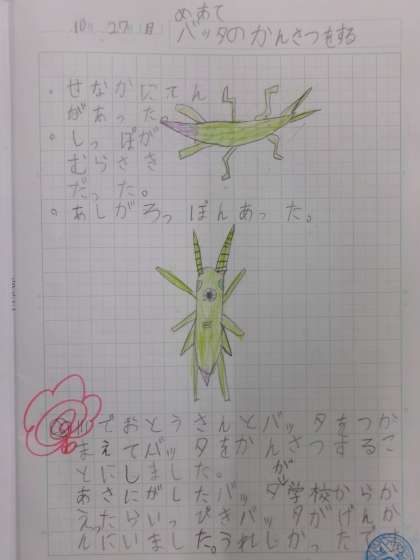 10 27 日
めあて
バッタのかんさつをする
。せなかにてん
があった。
。しっぽが
むらさき
だった。
。あしがろっぽんあった。
でおとうさんとバッタをつか
まえてバッタをかんさつするこ
とにしました。
あさにがしたバッタが学校からか
えったらいっぴきバッタがげんか
んにいました。うれしかったです